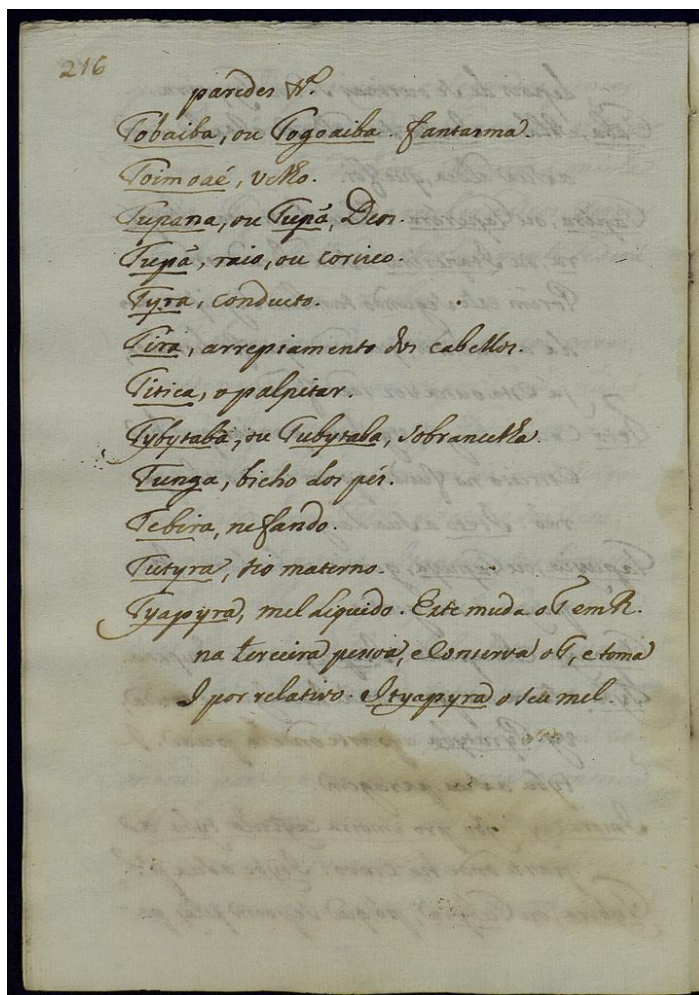 216
paredes &c.
Tobaiba, ou Togoaiba. fantasma.
Toimoaé, velho.
Tupana, ou Tupã, Deos.
Tupã, raio, ou corisco.
Tyra, conducto.
Tira, arrepiamento dos cabellos.
Titica, o palpitar.
Tybytaba, ou Tubytaba, sobrancelha.
Tunga, bicho dos pés.
Tebira, nefando.
Tutyra, tio materno.
Tyapyra, mel liquido. Este muda o T em R.
na terceira pessoa, e conserva o T, e toma
I por relativo. Ityapyra o seu mel.